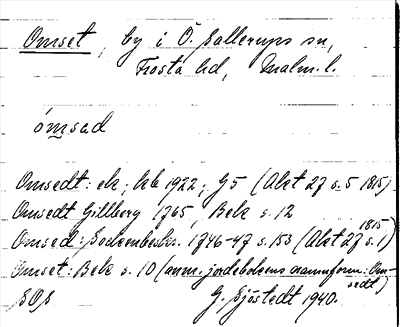 Omset, by i Ö. Sallerups sn,
Frosta hd, Malm. l.
ómsad
Omsedt: ek, kb 1922, G5 (Akt 27 s. 5 1815)
Omsedt Gillberg 1765, Bek s. 12
Omsed: Sockenbeskr. 1746-47 s. 153 (Akt 27 s. 1) 1815
Omset: Bek s. 10 (anm. jordebokens namnform: Omsedt)
G. Sjöstedt 1940.